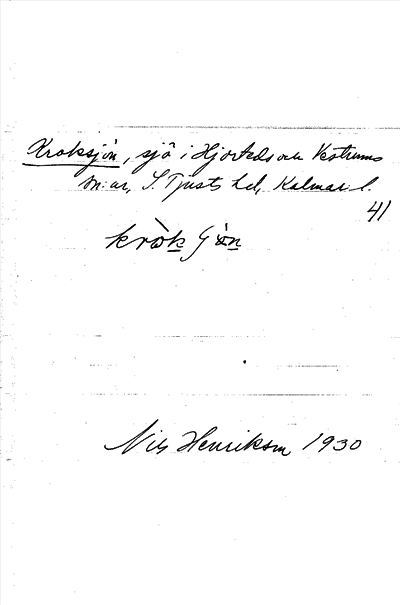 Kroksjön, sjö i Hjorteds och Vestrums
sn:ar, S. Tjusts hd, Kalmar l.
41
Nils Henrikson 1930